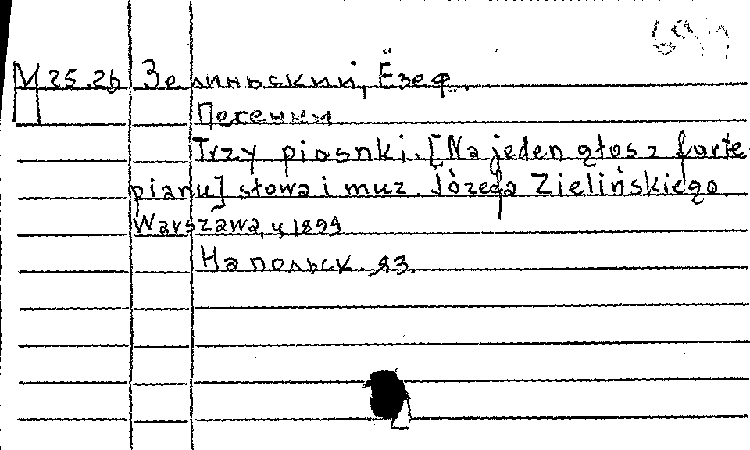 69/1
М 25.26 Зелиньский, Ёзеф.
Песенки
Trzy piosnki. [Na jeden głos z forte
pianu] słowa i muz. Józefa Zielińskiego.
Warszawa, ц 1899
На польск. яз.